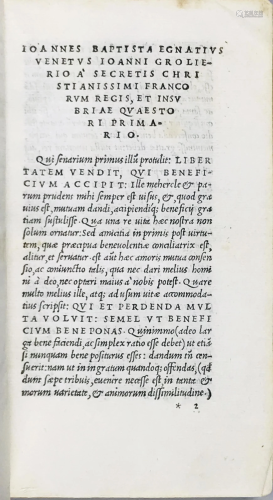 IOANNES BAPTISTA EGNATIVS
VENETVS IOANNI GROLIE-
RIO A' SECRETIS CHRI
STIANISSIMI FRANCO
RVM REGIS, ET INSV
BRIAE QVAESTO
RI PRIMA-
RIO.
Qui senarium primus illũ protulit: LIBER
TATEM VENDIT, QVI BENEFI
CIVM ACCIPIT: Ille mehercle &
rum prudens mihi semper est uisus, & quod gra
uius est, mutuam dandi, accipiendiq; beneficij gra
tiam sustulisse. Qua una re uita haec nostra non
solum ornatur: Sed amicitia in primis post uirtu-
tem, quæ præcipua beneuolentiæ conciliatrix est,
alitur, et seruatur. est aũt hæc amoris mutua consen
sio, ac coniunctio telis, qua nec dari melius homi
ni à deo, nec optari maius à nobis potest. Quare
multo melius ille, atq; ad usum uitæ accommoda-
tius scripsit: QVI ET PERDENDA MVL
TA VOLVIT: SEMEL VT BENEFI
CIVM BENE PONAS. Quinimmo (adeo lar
ga bene faciendi, ac simplex ratio esse debet) ut etiã
si nunquam bene positurus esses: dandum tñ cen-
suerit: nam ut in ingratum quandoq; offendas, (qđ
dum sæpe tribuis, euenire necesse est in tanta &
morum uarietate, & animorum dissimilitudine.)
* 2